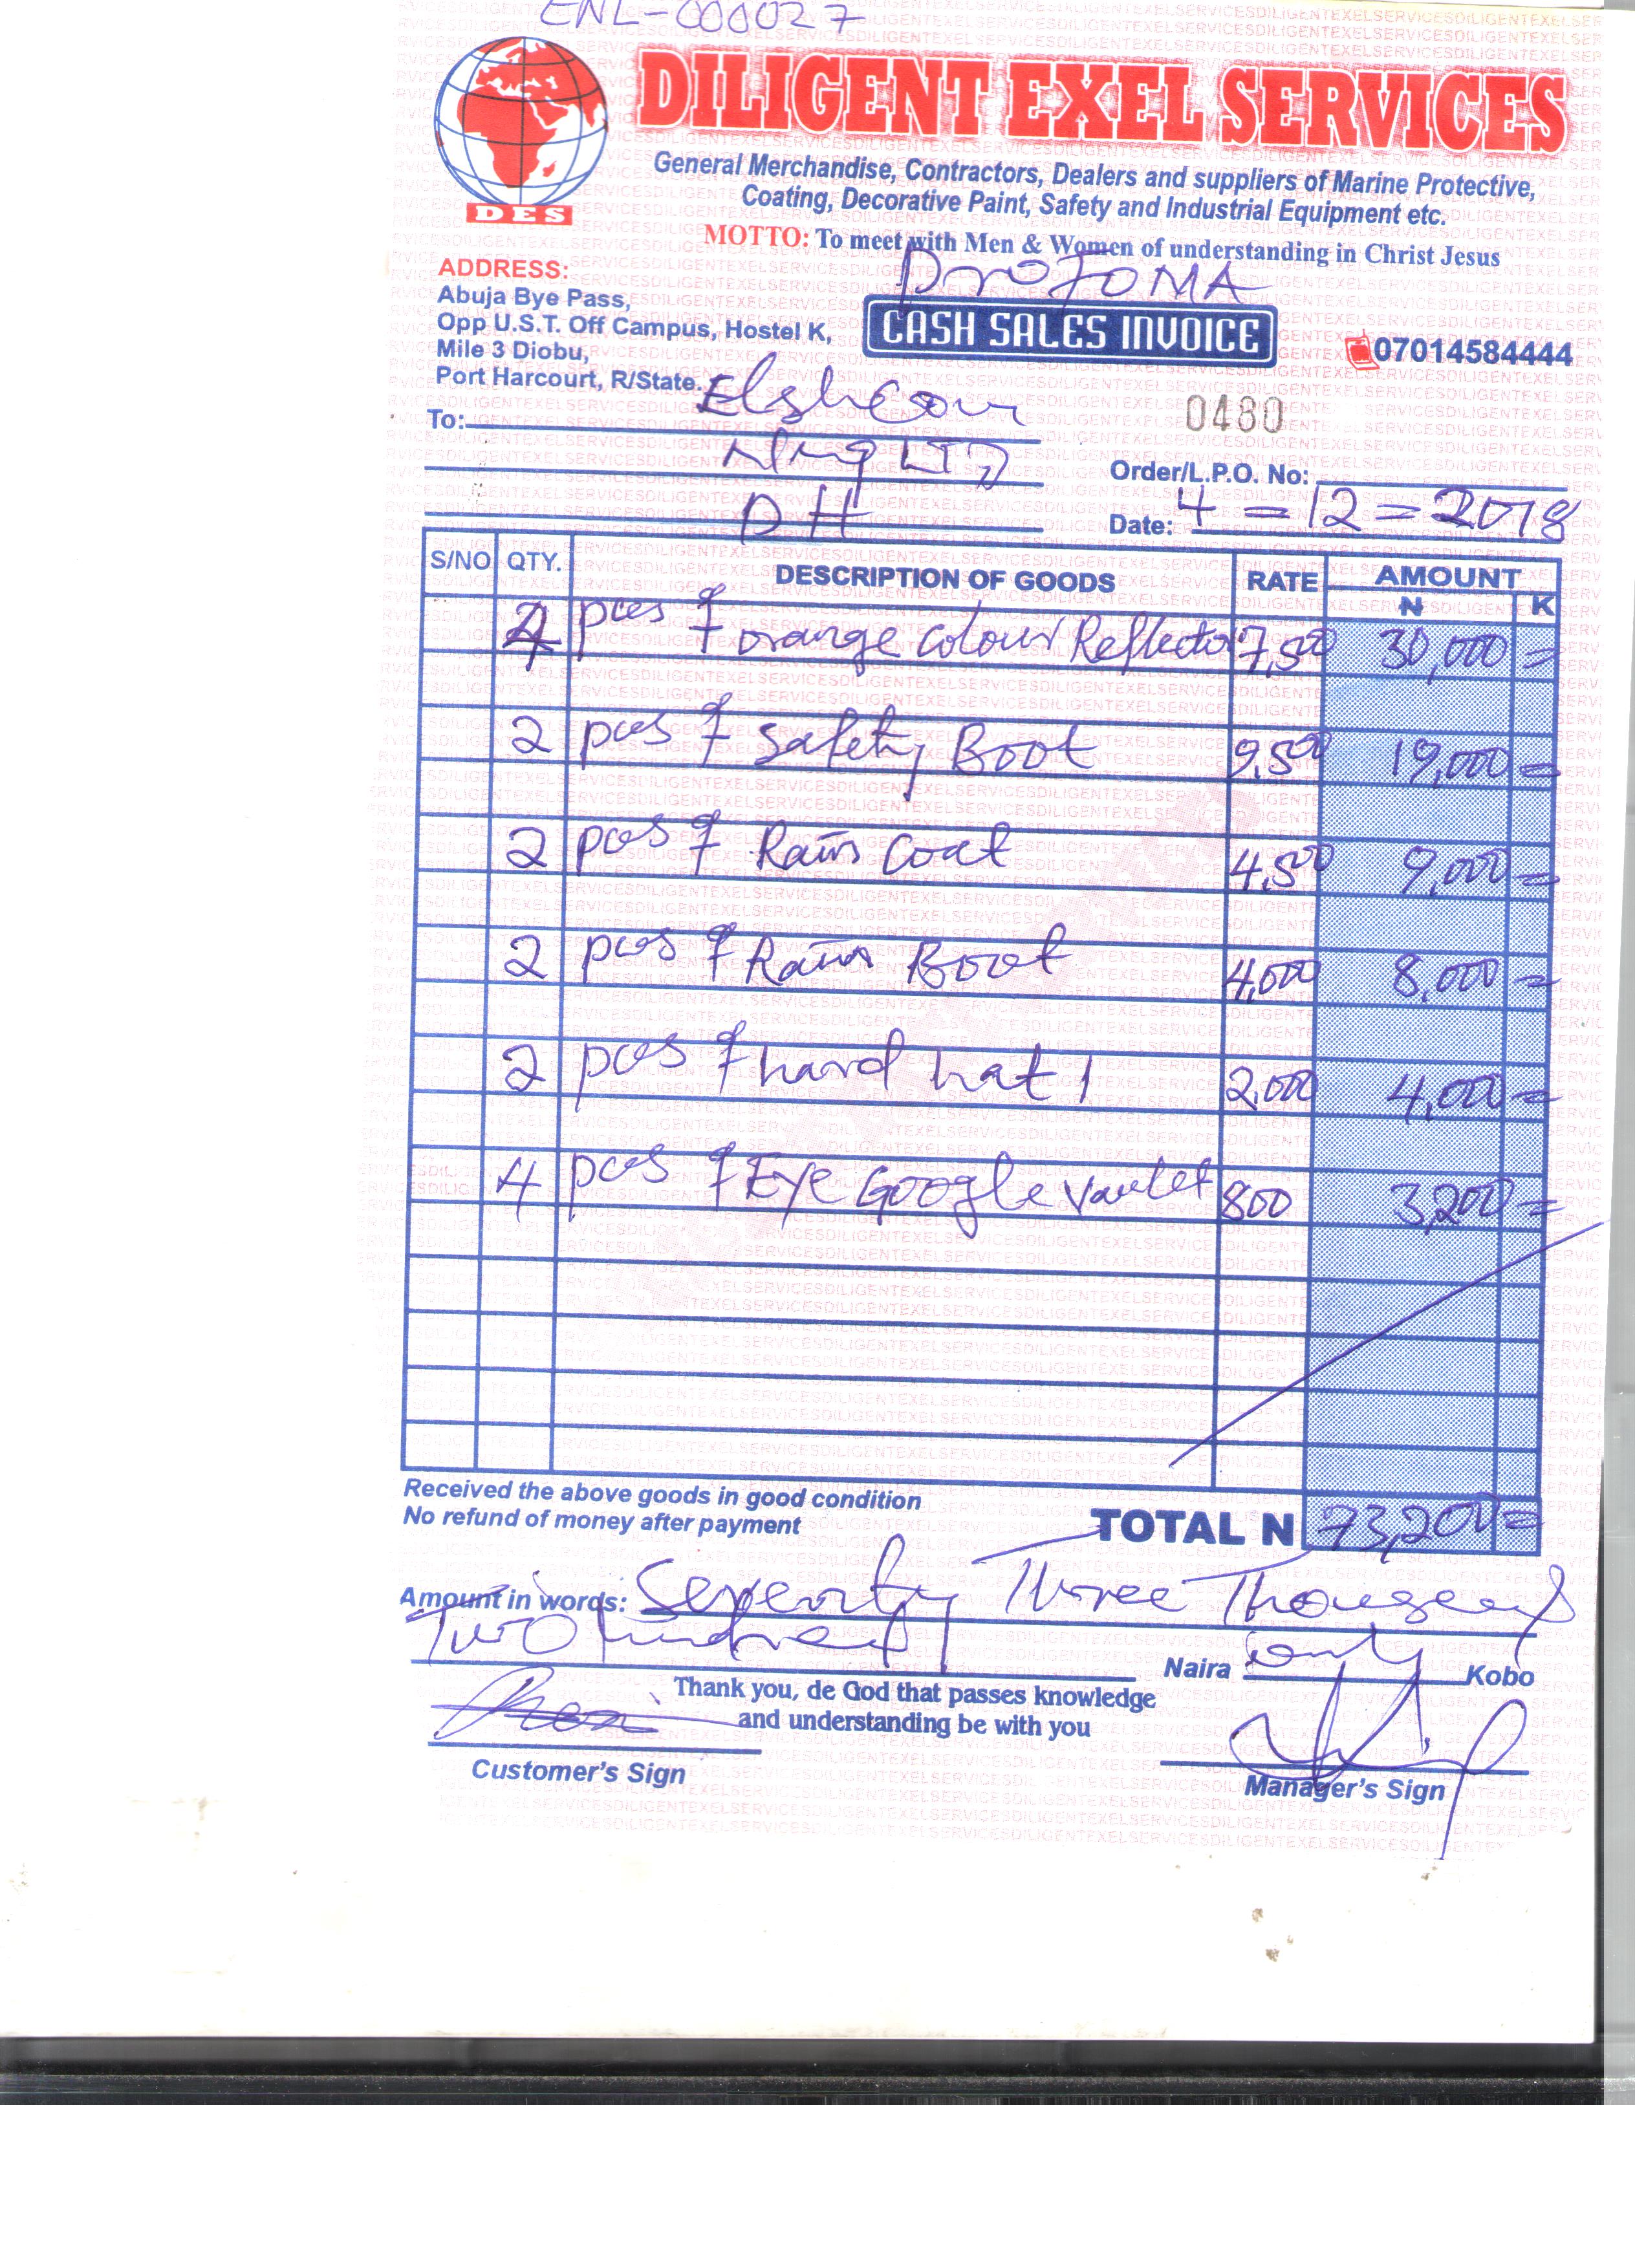 ENL-000027
DILIGENT EXEL SERVICES
DES
General Merchandise, Contractors, Dealers and suppliers of Marine Protective,
Coating, Decorative Paint, Safety and Industrial Equipment etc.
MOTTO: To meet with Men & Women of understanding in Christ Jesus
ProfOMA
ADDRESS:
Abuja Bye Pass,
Opp U.S.T. Off Campus, Hostel K,
Mile 3 Diobu,
Port Harcourt, R/State.
CASH SALES INVOICE
07014584444
0480
To: Elshcon
Nig LTD
PH
Order/L.P.O. No:
Date: 4=12=2018
S/NO QTY. DESCRIPTION OF GOODS RATE AMOUNT
N K
4 pces of orange Colour Reflector 7,500 30,000 =
2 pces of Safety Boot 9,500 19,000 =
2 pces of Rain Coat 4,500 9,000 =
2 pces of Rain Boot 4,000 8,000 =
2 pces of hard hat 2,000 4,000 =
4 pces of Eye Google 800 3,200 =
Received the above goods in good condition
No refund of money after payment
TOTAL N 73,200 =
Amount in words: Seventy Three Thousand
Two Hundred Naira only Kobo
Thank you, de God that passes knowledge
and understanding be with you
Customer's Sign
Manager's Sign